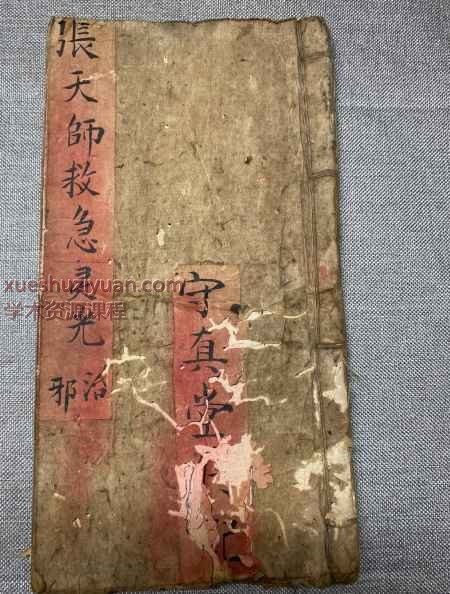 張天師救急灵光
治邪
守真堂
xueshuziyuan.com
学术资源课程